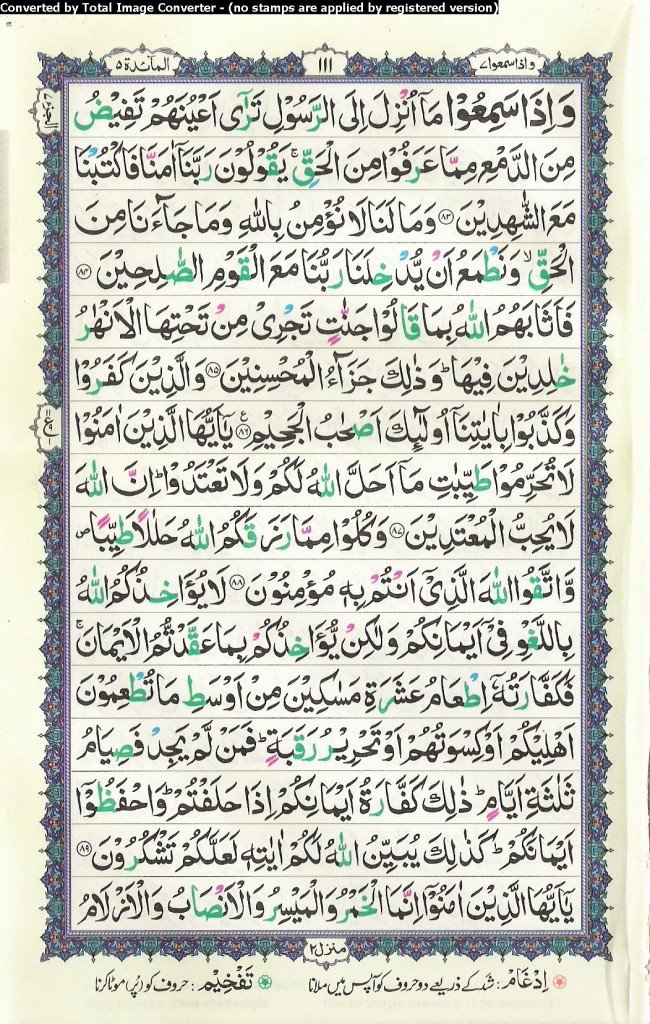 Converted by Total Image Converter - (no stamps are applied by registered version)
واذاسمعوا ٧
١١١
المآئدة ٥
وَاِذَا سَمِعُوْا مَآ اُنْزِلَ اِلَى الرَّسُوْلِ تَرٰٓى اَعْيُنَهُمْ تَفِيْضُ
مِنَ الدَّمْعِ مِمَّا عَرَفُوْا مِنَ الْحَقِّ ۚ يَقُوْلُوْنَ رَبَّنَآ اٰمَنَّا فَاكْتُبْنَا
مَعَ الشّٰهِدِيْنَ ﴿۸۳﴾ وَمَا لَنَا لَا نُؤْمِنُ بِاللّٰهِ وَمَا جَآءَنَا مِنَ
الْحَقِّ ۙ وَنَطْمَعُ اَنْ يُّدْخِلَنَا رَبُّنَا مَعَ الْقَوْمِ الصّٰلِحِيْنَ ﴿۸۴﴾
فَاَثَابَهُمُ اللّٰهُ بِمَا قَالُوْا جَنّٰتٍ تَجْرِىْ مِنْ تَحْتِهَا الْاَنْهٰرُ
خٰلِدِيْنَ فِيْهَا ؕ وَذٰلِكَ جَزَآءُ الْمُحْسِنِيْنَ ﴿۸۵﴾ وَالَّذِيْنَ كَفَرُوْا
وَكَذَّبُوْا بِاٰيٰتِنَآ اُولٰٓئِكَ اَصْحٰبُ الْجَحِيْمِ ﴿۸۶﴾ ع يٰٓاَيُّهَا الَّذِيْنَ اٰمَنُوْا
لَا تُحَرِّمُوْا طَيِّبٰتِ مَآ اَحَلَّ اللّٰهُ لَكُمْ وَلَا تَعْتَدُوْا ؕ اِنَّ اللّٰهَ
لَا يُحِبُّ الْمُعْتَدِيْنَ ﴿۸۷﴾ وَكُلُوْا مِمَّا رَزَقَكُمُ اللّٰهُ حَلٰلًا طَيِّبًا ص
وَّاتَّقُوا اللّٰهَ الَّذِىْٓ اَنْتُمْ بِهٖ مُؤْمِنُوْنَ ﴿۸۸﴾ لَا يُؤَاخِذُكُمُ اللّٰهُ
بِاللَّغْوِ فِىْٓ اَيْمَانِكُمْ وَلٰكِنْ يُّؤَاخِذُكُمْ بِمَا عَقَّدْتُّمُ الْاَيْمَانَ ۚ
فَكَفَّارَتُهٗٓ اِطْعَامُ عَشَرَةِ مَسٰكِيْنَ مِنْ اَوْسَطِ مَا تُطْعِمُوْنَ
اَهْلِيْكُمْ اَوْ كِسْوَتُهُمْ اَوْ تَحْرِيْرُ رَقَبَةٍ ؕ فَمَنْ لَّمْ يَجِدْ فَصِيَامُ
ثَلٰثَةِ اَيَّامٍ ؕ ذٰلِكَ كَفَّارَةُ اَيْمَانِكُمْ اِذَا حَلَفْتُمْ ؕ وَاحْفَظُوْٓا
اَيْمَانَكُمْ ؕ كَذٰلِكَ يُبَيِّنُ اللّٰهُ لَكُمْ اٰيٰتِهٖ لَعَلَّكُمْ تَشْكُرُوْنَ ﴿۸۹﴾
يٰٓاَيُّهَا الَّذِيْنَ اٰمَنُوْٓا اِنَّمَا الْخَمْرُ وَالْمَيْسِرُ وَالْاَنْصَابُ وَالْاَزْلَامُ
منزل ٢
اِدْغَامْ: شد کے ذریعے دو حروف کو آپس میں ملانا
تَفْخِيْم: حروف کو (پُر) موٹا کرنا